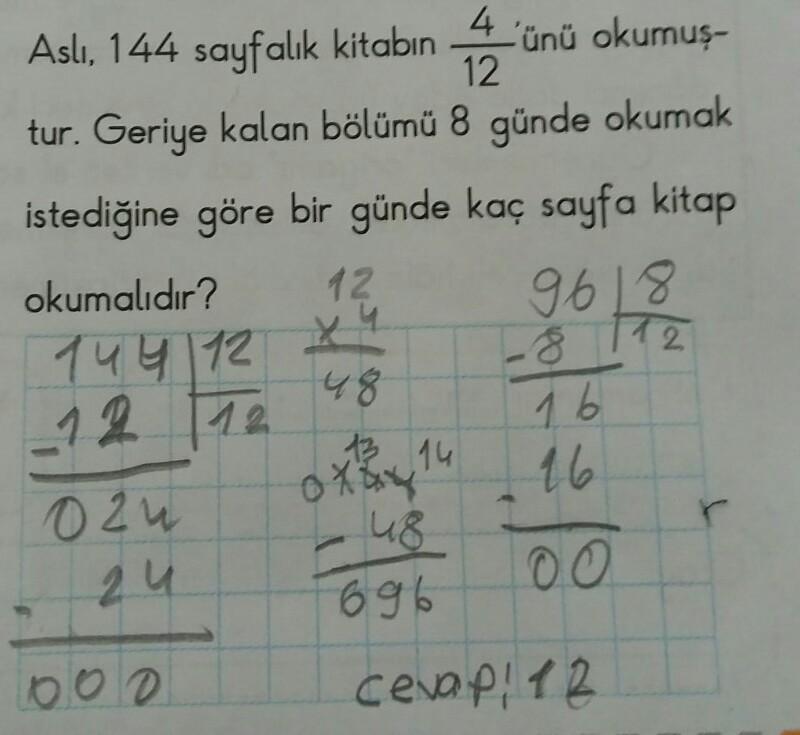 Aslı, 144 sayfalık kitabın 4/12 'ünü okumuş-
tur. Geriye kalan bölümü 8 günde okumak
istediğine göre bir günde kaç sayfa kitap
okumalıdır?
144 | 12
-12 | 12
024
- 24
000
12
x 4
48
0 13 14
144
- 48
096
96 | 8
-8 | 12
16
- 16
00
r
cevap! 12